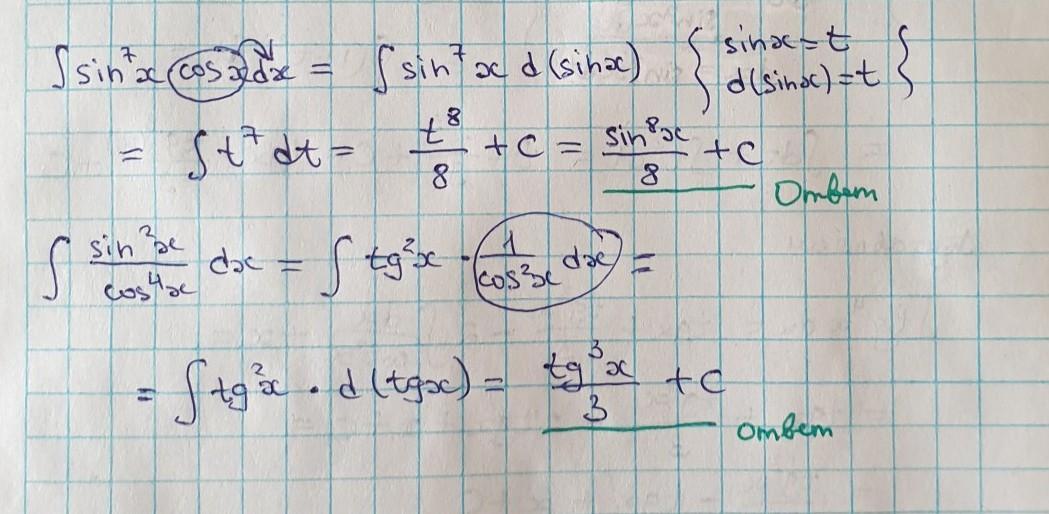 ∫ sin⁷x cos x dx = ∫ sin⁷x d(sinx) { sinx = t
d(sinx) = t }
= ∫ t⁷ dt = t⁸/8 + C = sin⁸x/8 + C
Ответ
∫ sin²x/cos⁴x dx = ∫ tg²x · 1/cos²x dx =
= ∫ tg²x · d(tgx) = tg³x/3 + C
ответ